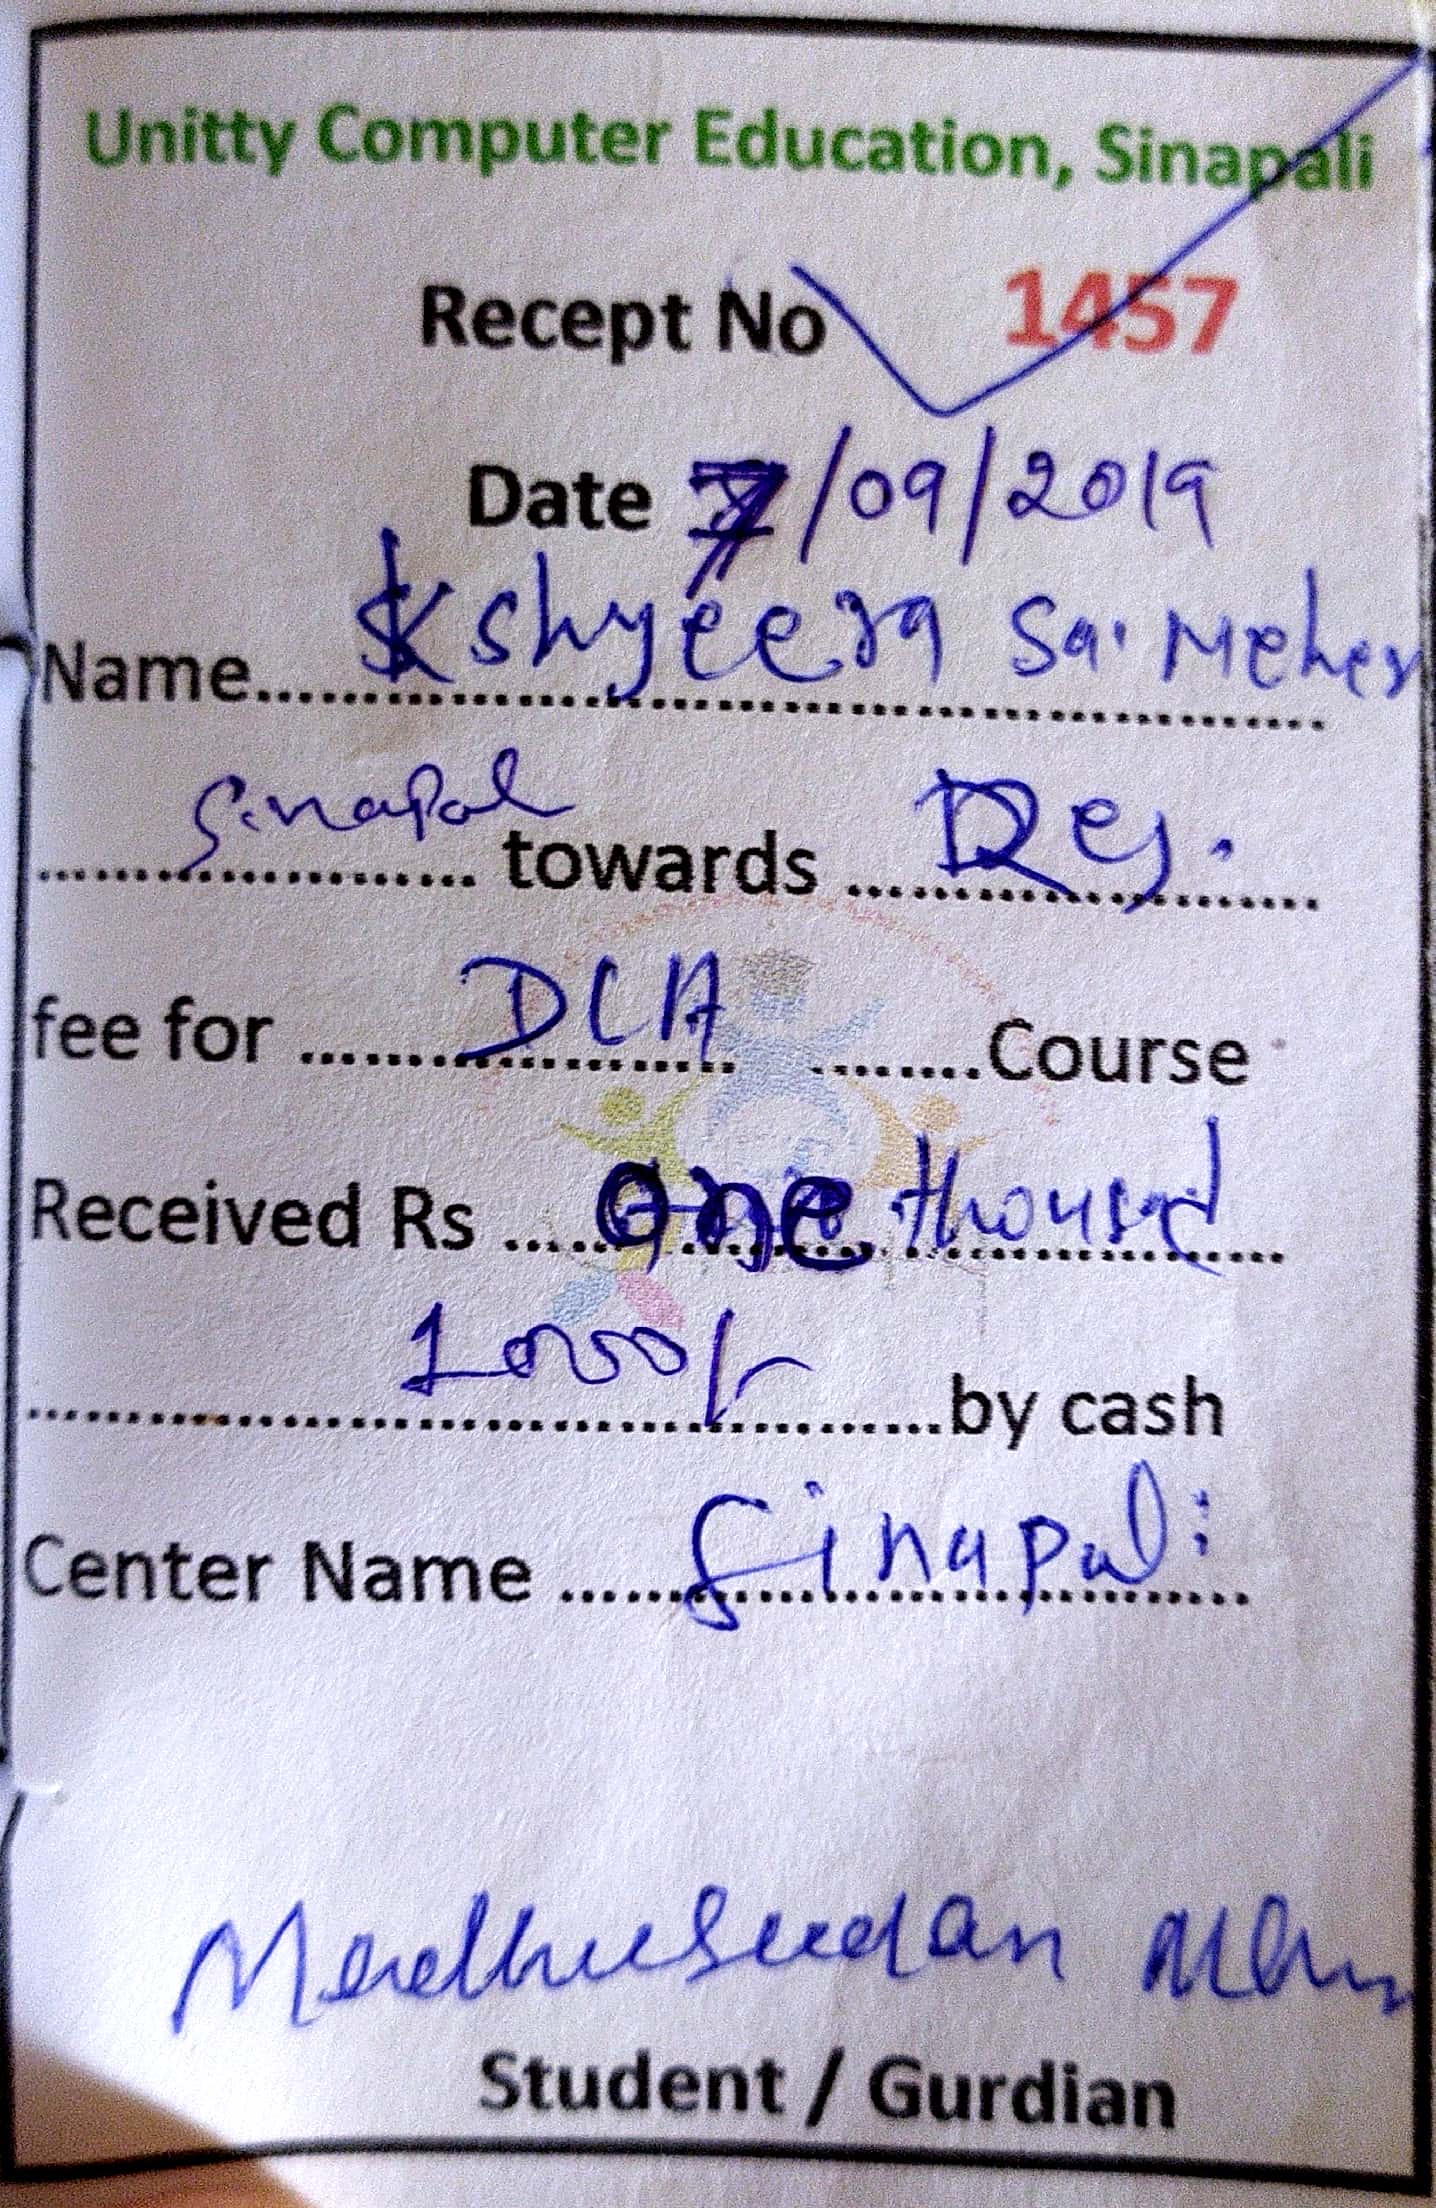 Unitty Computer Education, Sinapali
Recept No 1457
Date 7/09/2019
Name.......... Kshyeera Sai Meher
.......... Sinapal towards .......... Reg.
fee for .......... DCA ..........Course
Received Rs .......... One thousad
1000/- ..........by cash
Center Name .......... Sinapali
Madhusudan
Student / Gurdian